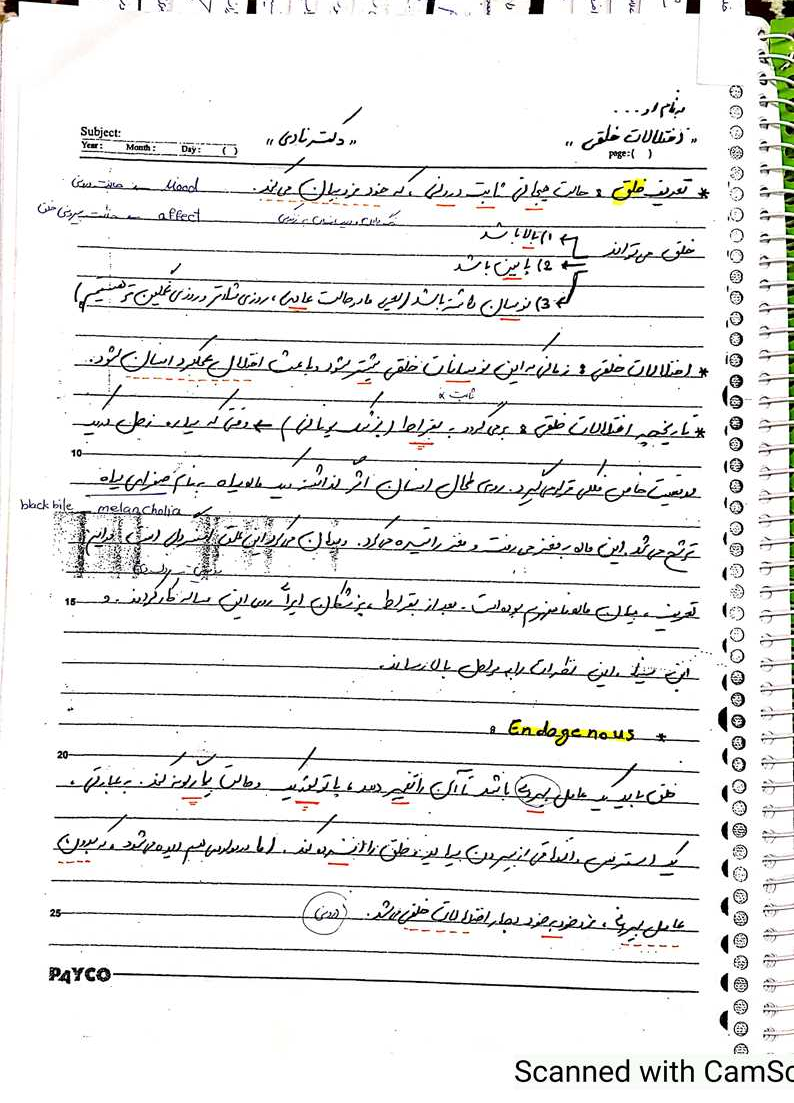 به نام او...
Subject:
Year: Month: Day: ( )
"دکتر نادی"
"اختلالات خلقی"
page: ( )
* تعریف خلق: حالت هیجانی ثابت درونی، که خود فرد بیان می‌کند.
Mood
affect
خلق می‌تواند
1) بالا باشد
2) پایین باشد
3) نوسان داشته باشد (یعنی ما در حالت عادی، روزی شادتر و روزی غمگین تر هستیم)
* اختلالات خلقی: زمانی که این نوسانات خلقی بیشتر شود و باعث اختلال عملکرد انسان شود.
ثابت
* تاریخچه اختلالات خلقی: برمی‌گردد به بقراط (پزشک یونانی) ← وقتی که سیاره زحل در یک
موقعیت خاص فلکی قرار می‌گیرد. روی طحال انسان اثر گذاشته و یک ماده سیاه به نام صفرای سیاه
black bile melancholia
10
ترشح می‌شد. این ماده به مغز می‌رفت و مغز را تیره می‌کرد. و بیان می‌کرد این خلق افسرده است
15
تعریف، بیان بوده است. بعد از بقراط، پزشکان ایرانی روی این مساله کار کردند. و
ابن سینا، این نظرات را به مراحل بالا رساند.
* Endagenous:
20
خلق باید یک عامل بیرونی باشد تا آن را تغییر دهد، یا تولید کند و حالت پایدار کند. به عبارتی،
یک استرس، اتفاقی از بیرون بیاید و خلق را افسرده کند. اما مواردی هم دیده می‌شود، که بدون
عامل بیرونی، خود به خود دچار اختلالات خلقی می‌شد. (درونی)
25
PAYCO
Scanned with CamSc